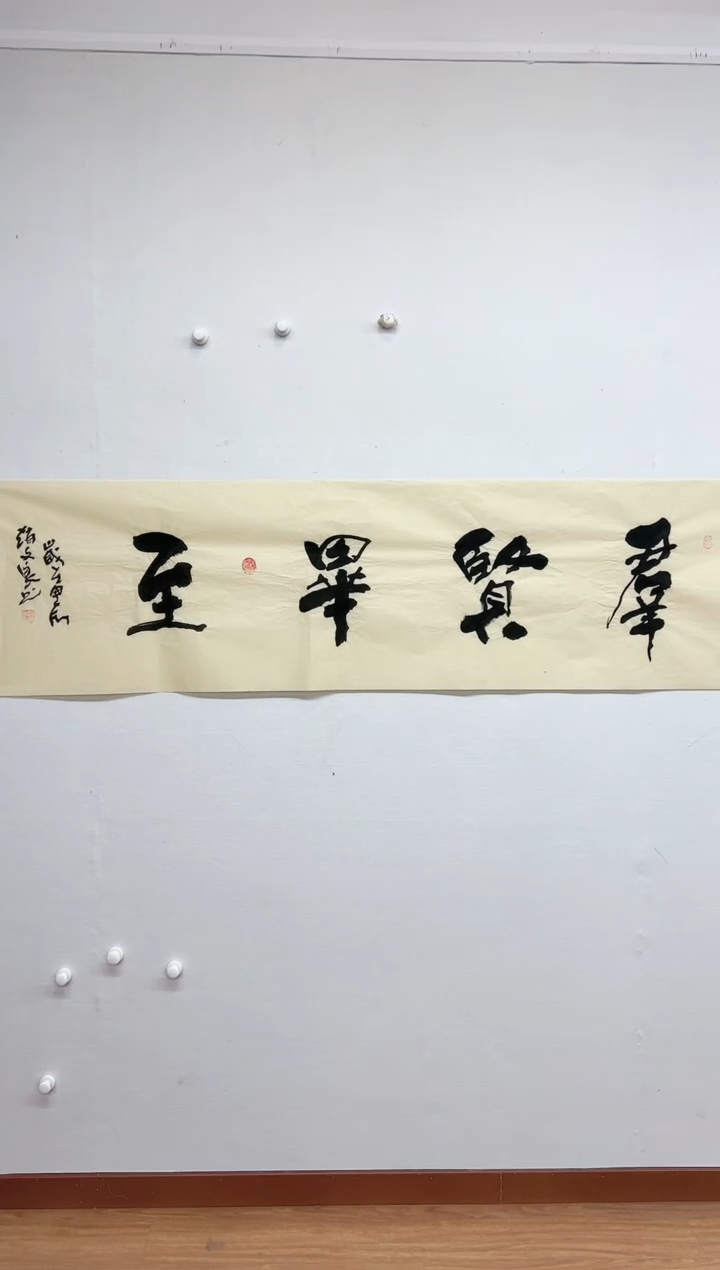 羣賢畢至
歲在甲辰